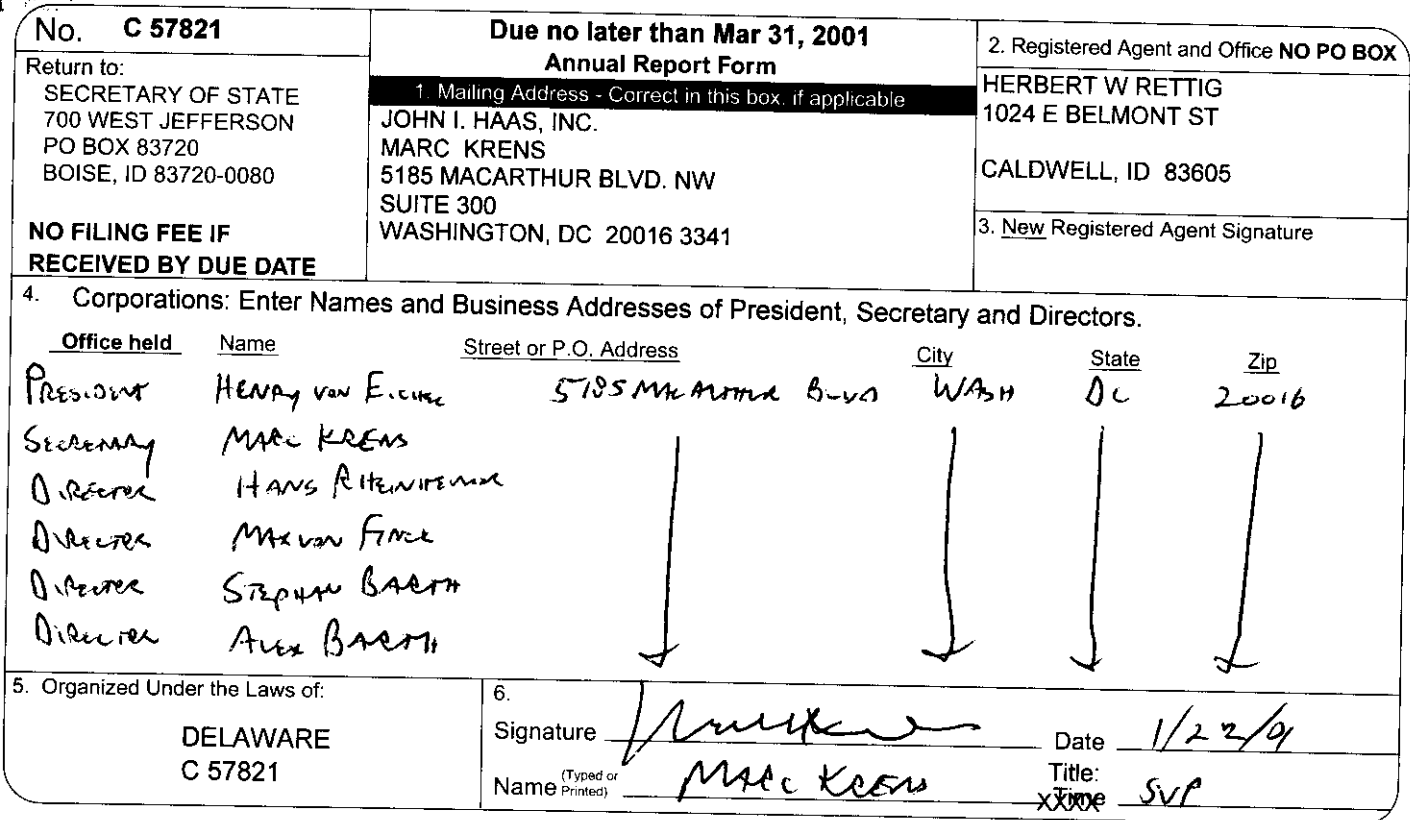 No. C 57821
Return to:
SECRETARY OF STATE
700 WEST JEFFERSON
PO BOX 83720
BOISE, ID 83720-0080
NO FILING FEE IF
RECEIVED BY DUE DATE
Due no later than Mar 31, 2001
Annual Report Form
1. Mailing Address - Correct in this box, if applicable
JOHN I. HAAS, INC.
MARC KRENS
5185 MACARTHUR BLVD. NW
SUITE 300
WASHINGTON, DC 20016 3341
2. Registered Agent and Office NO PO BOX
HERBERT W RETTIG
1024 E BELMONT ST
CALDWELL, ID 83605
3. New Registered Agent Signature
4. Corporations: Enter Names and Business Addresses of President, Secretary and Directors.
Office held Name Street or P.O. Address City State Zip
PRESIDENT HENRY VON 5185 MACARTHUR BLVD WASH DC 20016
SECRETARY MARC KRENS
DIRECTOR HANS
DIRECTOR MAX VON FINCK
DIRECTOR STEPHAN BARTH
DIRECTOR ALEX BARTH
5. Organized Under the Laws of:
DELAWARE
C 57821
6.
Signature Date 1/22/01
Name (Typed or Printed) MARC KRENS Title: SVP